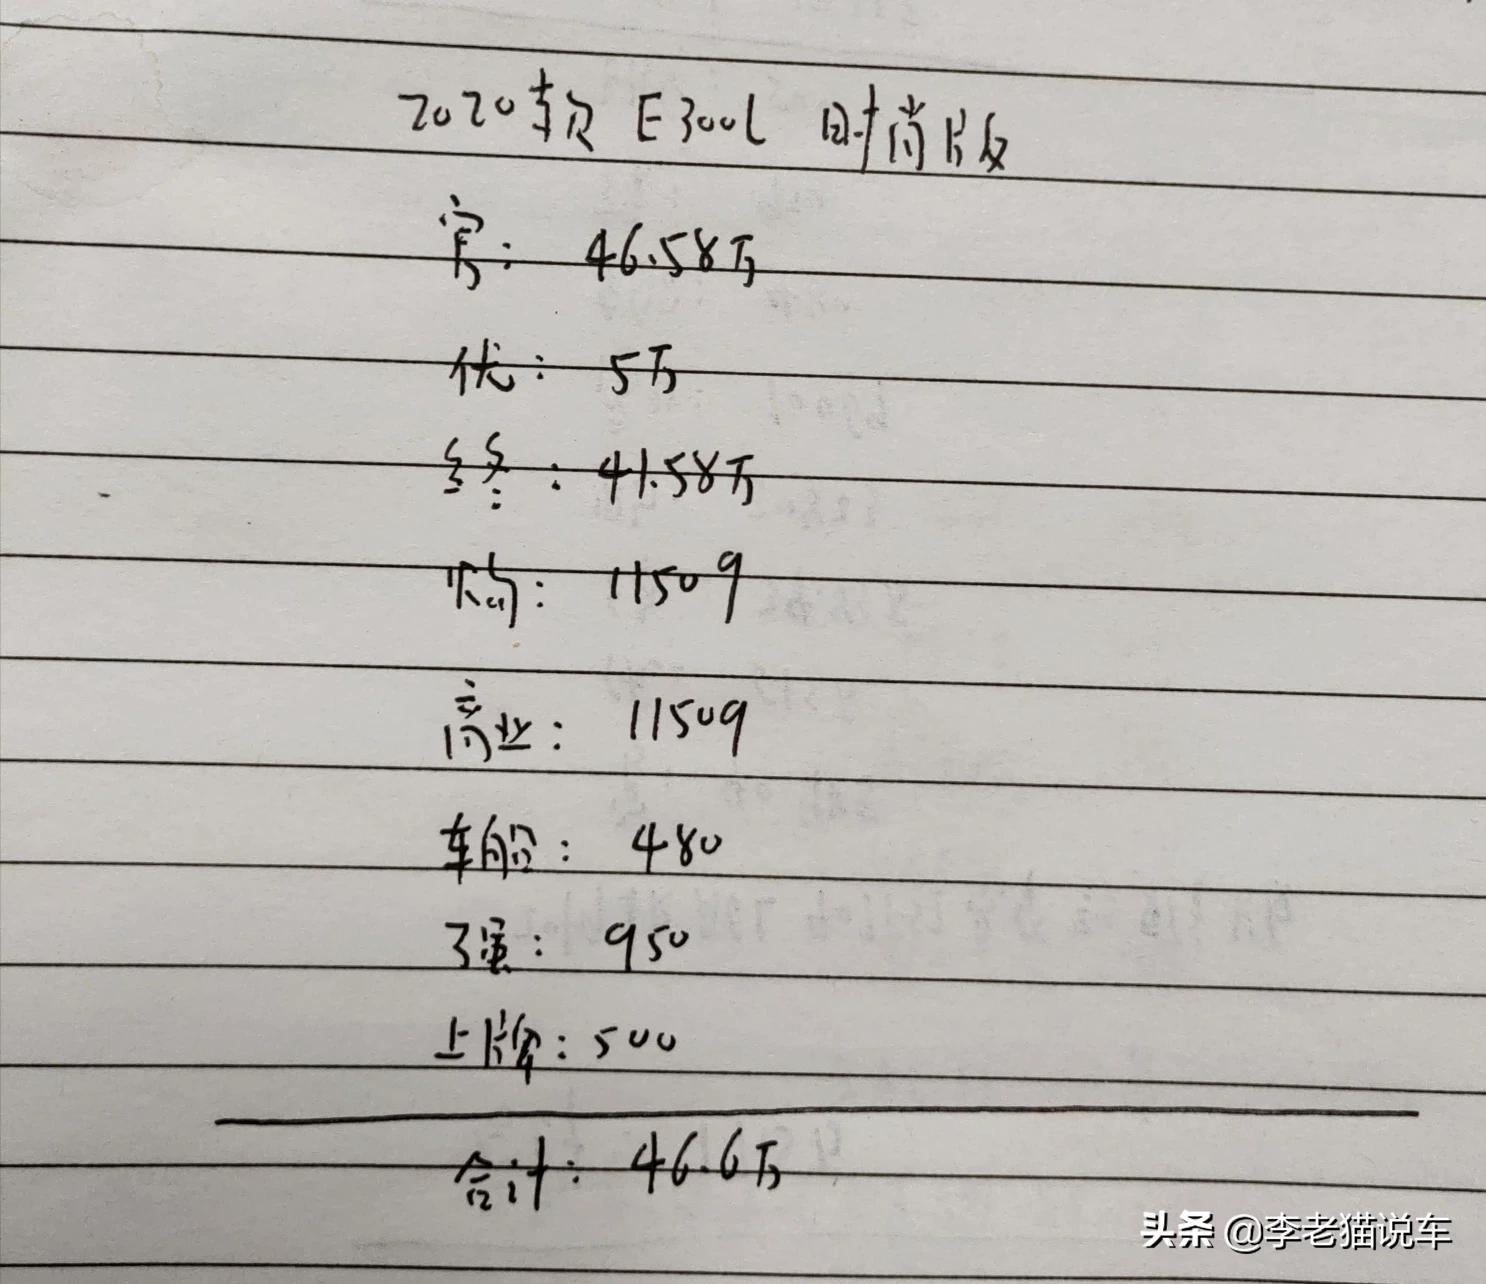 2020款 E300L 时尚版
官: 46.58万
优: 5万
终: 41.58万
购: 11509
商业: 11509
车船: 480
交强: 950
上牌: 500
合计: 46.6万
头条 @李老猫说车